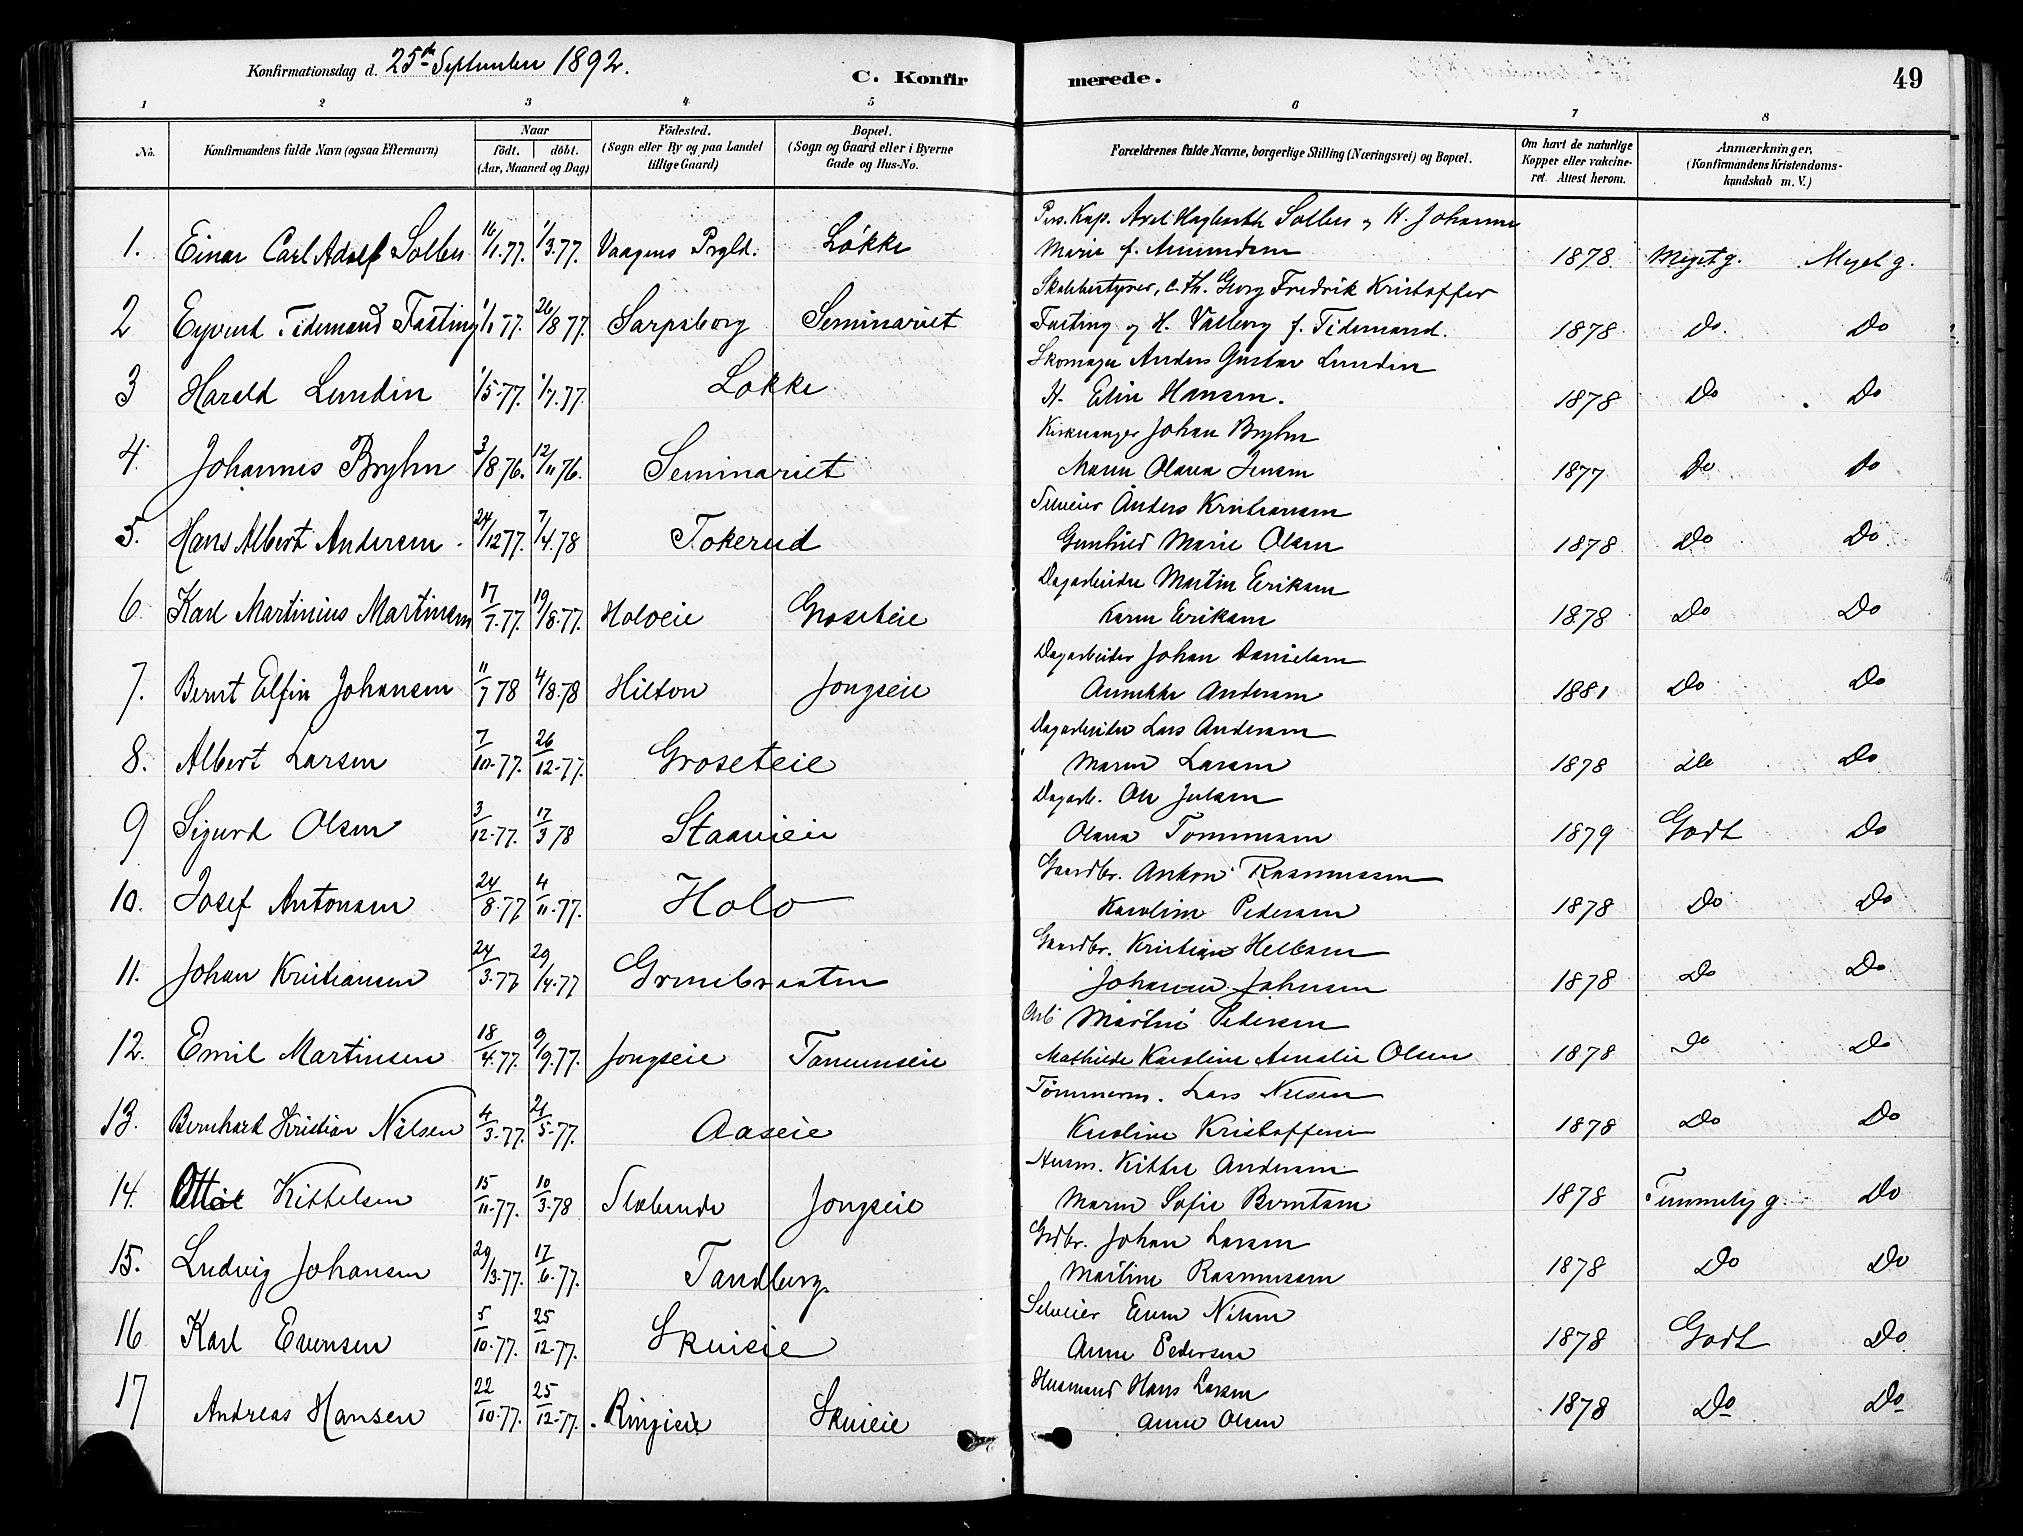 Konfirmationsdag d. 25de September 1892.
C. Konfir merede. 49
1 2 3 4 5 6 7 8
No. Konfirmandens fulde Navn (ogsaa Efternavn) Naar födt. döbt. (Aar, Maaned og Dag) Födested. (Sogn eller By og paa Landet tillige Gaard) Bopæl. (Sogn og Gaard eller i Byerne Gade og Hus-No. Forældrenes fulde Navne, borgerlige Stilling (Næringsvei) og Bopæl. Om havt de naturlige Kopper eller vakcineret. Attest herom. Anmærkninger, (Konfirmandens Kristendomskundskab m. V.)
Pers. Kap. Axel Hagbarth Solberg og H. Johanne
1. Einar Carl Adolf Solberg 16/1.77. 1/3.77. Vaagens Prgld. Løkke Marie f. Amundsen 1878. Meget g. Meget g.
Skolebestyrer, c. th. Georg Fredrik Kristoffer
2 Eyvind Tidemand Fasting 1/1 77. 26/8 77. Sarpsborg Seminariet Fasting og H. Valborg f. Tidemand. 1878 Do. Do
Skomager Anders Gustav Lundin
3 Harald Lundin 1/5-77. 1/7.77. Løkke H. Elin Hansen. 1878 Do Do
Kirkesanger Johan Bryhn
4. Johannes Bryhn 3/8.76. 12/11 76. Seminariet Maren Olava Jensen 1877 Do Do
Selveier Anders Kristiansen
5. Hans Albert Andersen 24/12 77. 7/4.78 Tokerud Gunhild Marie Olsen 1878 Do Do
Dagarbeider Martin Eriksen
6. Karl Martinius Martinsen 17/7.77. 19/8.77. Holoeie Groseteie Karen Eriksen 1878 Do Do
Dagarbeider Johan Danielsen
7. Bernt Elfin Johansen 11/7 78 4/8.78 Hilton Jongseie Annekke Andersen 1881 Do Do
Dagarbeider Lars Andersen
8. Albert Larsen 7/10-77. 26/12-77. Groseteie Maren Larsen 1878 Do Do
Dagarb. Ole Julsen
9 Sigurd Olsen 3/12-77. 17/3 78 Staaveien Olava Tommesen 1879 Godt Do
Gaardbr. Anton Rasmussen
10. Josef Antonsen 24/8.77 4/11-77. Holo Karoline Pedersen 1878 Do Do
Gaardbr. Kristian Hellesen
11. Johan Kristiansen 24/3.77 29/4.77 Grinibraaten Johanne Johnsen 1878 Do Do
Arb Martin Pedersen
12. Emil Martinsen 18/4.77. 9/9.77. Jongseie Tanumseie Mathilde Karoline Amalie Olsen 1878 Do Do
Tømmerm. Lars Nilsen
13. Bernhard Kristian Nilsen 4/3-77. 21/5-77. Aaseie Karoline Kristoffersen 1878 Do Do
Husm. Kittel Andersen
14. Otto Kittelsen 15/11-77. 10/3.78 Slæbende Jongseie Maren Sofie Berntsen 1878 Temmelig g. Do
Grdbr. Johan Larsen
15. Ludvig Johansen 29/3.77. 17/6.77. Tandberg Martine Rasmussen 1878 Do Do
Selveier Even Nilsen
16 Karl Evensen 5/10-77. 25/12-77. Skuieie Anne Pedersen 1878 Godt Do
Husmand Hans Larsen
17 Andreas Hansen 22/10-77. 25/12-77. Ringieie Skuieie Anne Olsen 1878 Do Do